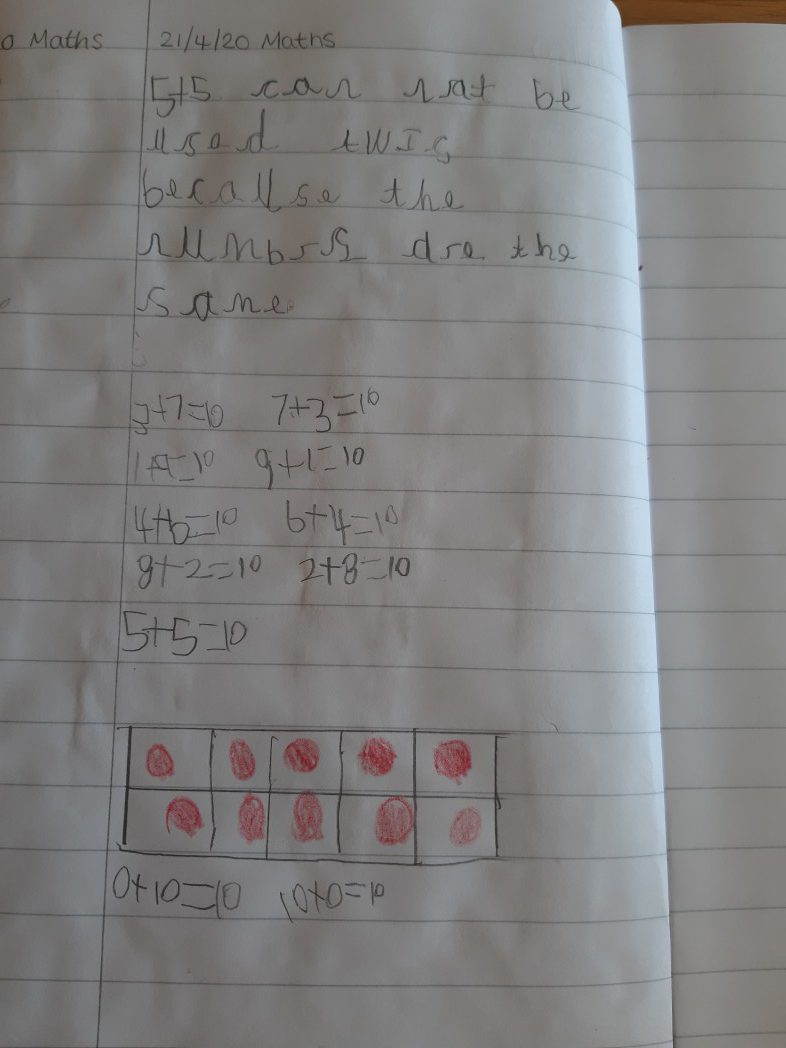 o Maths
21/4/20 Maths
5+5 can not be
used twic
because the
numbrs are the
same
3+7=10 7+3=10
1+9=10 9+1=10
4+6=10 6+4=10
8+2=10 2+8=10
5+5=10
0+10=10 10+0=10